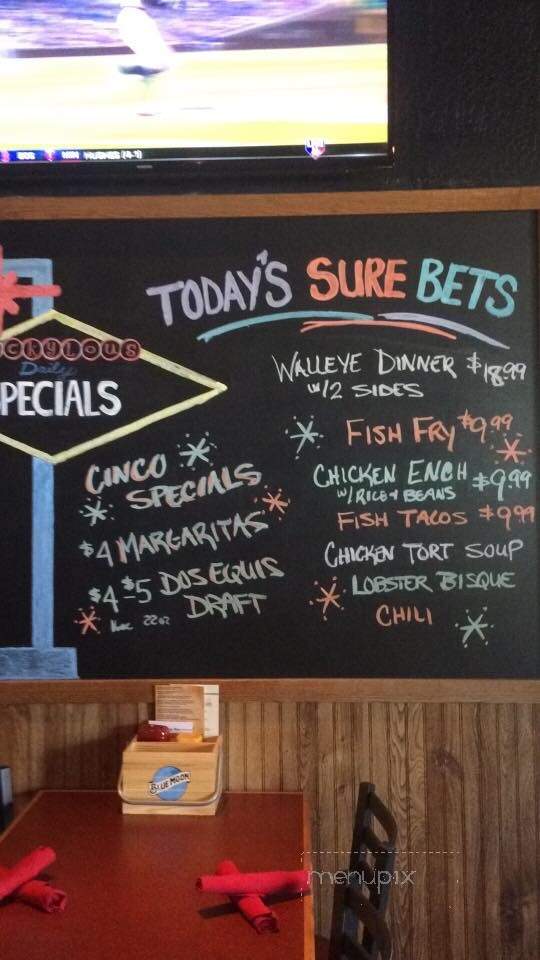 BOS MIN HUGHES (4-1)
TODAY'S SURE BETS
CKYLOUS
Daily
SPECIALS
WALLEYE DINNER $18.99
w/2 SIDES
FISH FRY $9.99
CHICKEN ENCH $9.99
w/RICE+BEANS
FISH TACOS $9.99
CHICKEN TORT SOUP
LOBSTER BISQUE
CHILI
CINCO
SPECIALS
$4 MARGARITAS
$4-$5 DOS EQUIS
DRAFT
22oz
BLUE MOON
menupix